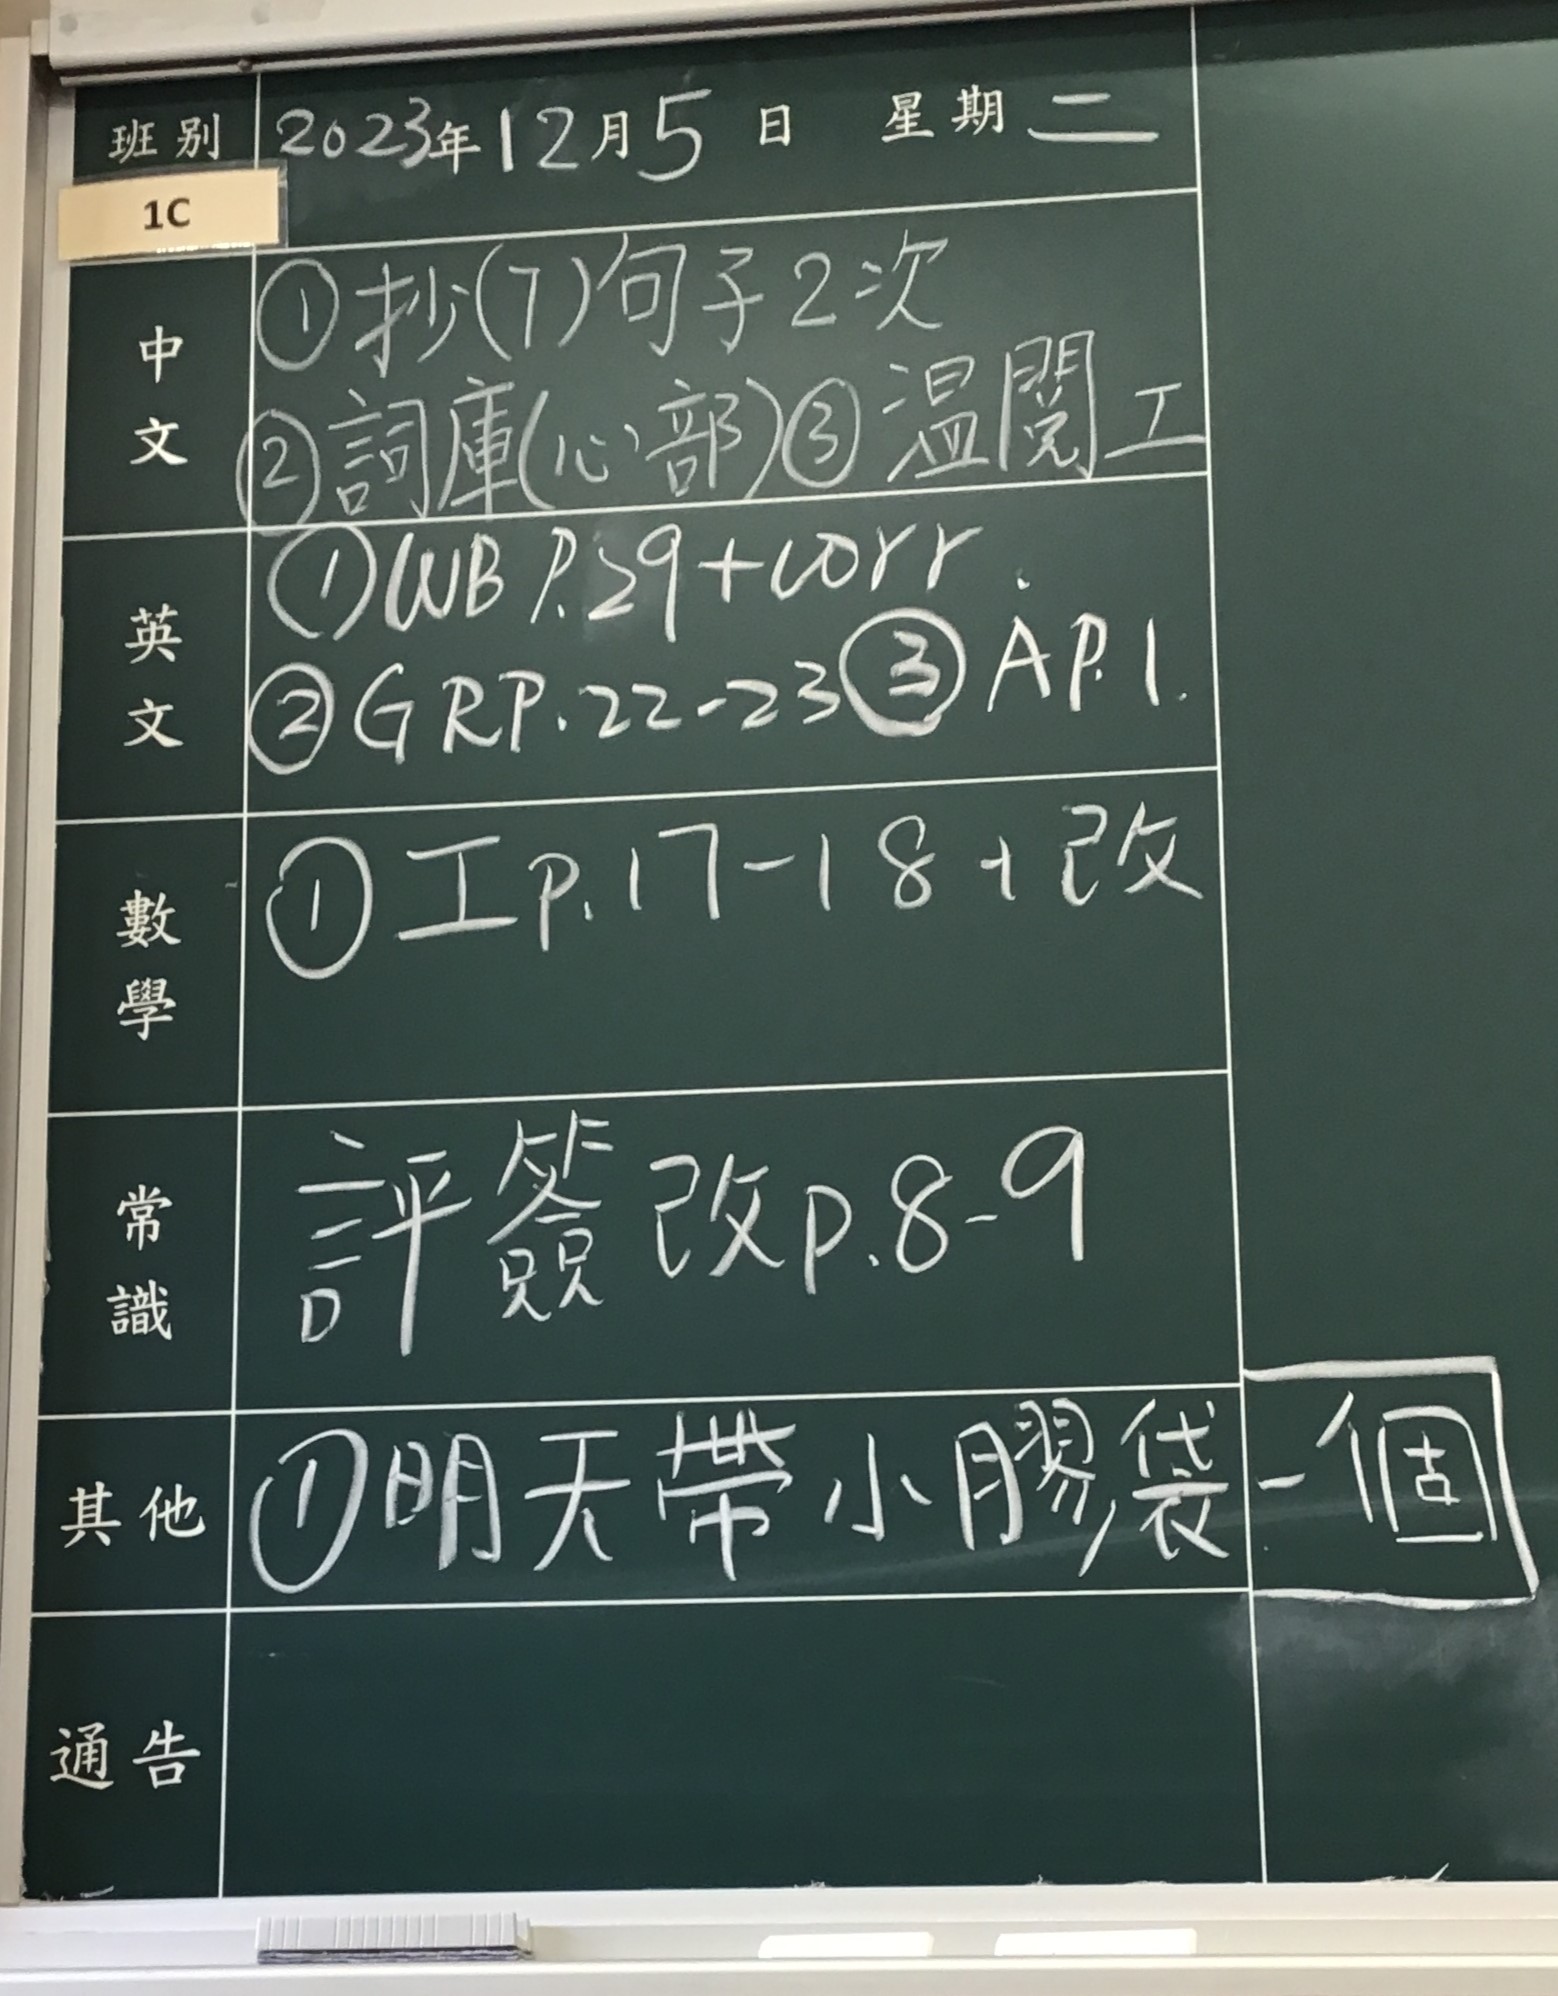 班別 2023年12月5日 星期二
1C
中文 ①抄(7)句子2次
②詞庫(心部)③温閱工
英文 ①WB P.29+corr.
②GRP.22-23③AP.1.
數學 ①工p.17-18+改
常識 評簽改p.8-9
其他 ①明天帶小膠袋一個
通告